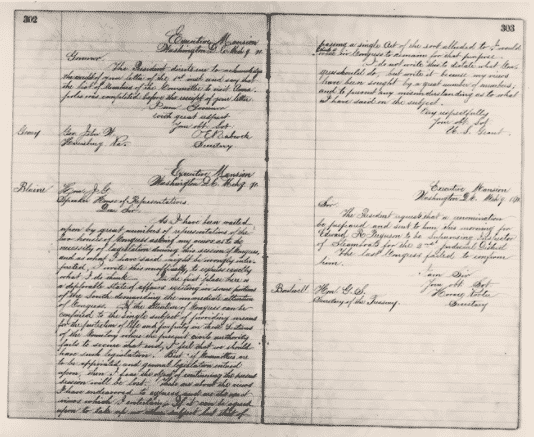 302
Executive Mansion
Washington D.C. Mch 9. 71.
Governor.
The President directs me to acknowledge
the receipt of your letter of the 1st inst and say that
the list of Members of the Committee to visit
was completed before the receipt of your letter
I am Governor
with great respect
Your Obt Svt
Geary
Gov. John W.
O. E. Babcock
Harrisburg Pa.
Secretary
Executive Mansion
Washington D.C. Mch 9. 71.
Blaine
Hon. J. G.
Speaker House of Representatives
Dear Sir.
As I have been waited
upon by great numbers of representatives of the
two houses of Congress asking my views as to the
necessity of legislation during this session of Congress,
and as what I have said might be wrongly inter-
preted, I write this to express exactly
what I do think. In the first place there is
a deplorable state of affairs existing in some portions
of the South demanding the immediate attention
of Congress. If the attention of Congress can be
confined to the single subject of providing means
for the protection of life and property in those Sections
of the Country where the present civil authority
fails to secure that end, I feel that we should
have such legislation. But if Committees are
to be appointed and general legislation entered
upon, then I fear the object of continuing the present
session will be lost. These are about the views
I have endeavored to express and are the exact
views which I entertain. If it can be agreed
upon to take up no other subject but that of
303
passing a single Act of the sort alluded to I would
Congress to remain for that purpose.
I do not write this to dictate what Con-
gress should do, but write it because my views
have been sought by a great number of members,
and to prevent any misunderstanding as to what
I have said on the subject.
Very respectfully
Your Obt Svt
U. S. Grant.
Executive Mansion
Washington D.C. Mch 9. 1871.
Sir
The President requests that a nomination
be prepared and sent to him this morning for
Edward H. Ferguson to be Supervising Inspector
of Steamboats for the 2nd Judicial District.
The last Congress failed to confirm
him.
I am Sir
Your Obt Svt
Boutwell
Hon. G. S.
Horace Porter
Secretary of the Treasury.
Secretary